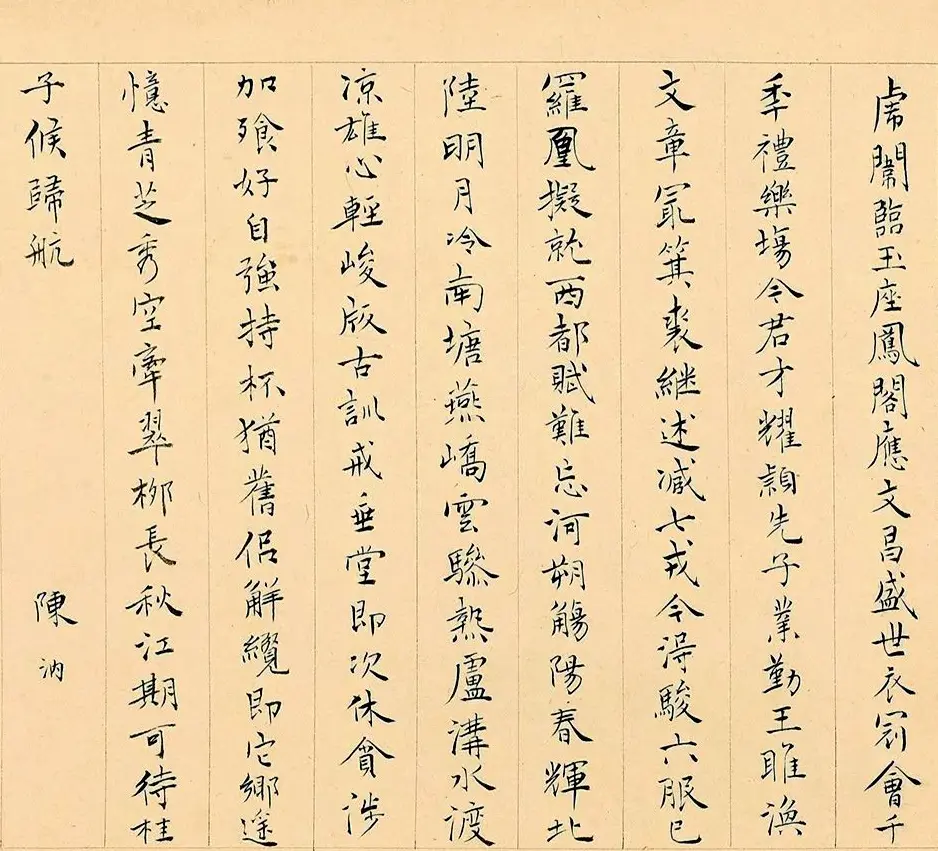 虎闈臨玉座鳳閣應文昌盛世衣冠會千
秊禮樂場令君才耀穎先子業勤王雎渙
文章冣箕裘継述臧七戎今得駿六服已
羅凰擬就西都賦難忘河朔觴陽春輝北
陸明月冷南塘燕嶠雲驂熱盧溝水渡
凉雄心輕峻版古訓戒垂堂即次休貪涉
加飱好自強持杯猶舊侶解纜即它鄉遥
憶青芝秀空牽翠柳長秋江期可待桂
子候歸航
陳汭